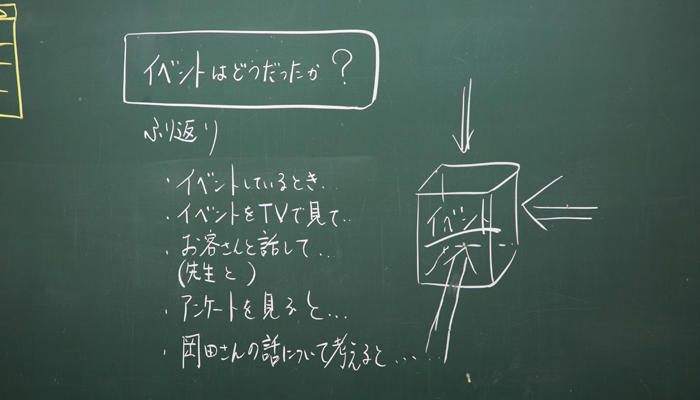 イベントはどうだったか?
ふり返り
・イベントしているとき...
・イベントをTVで見て..
・お客さんと話して...
(先生と)
・アンケートを見ると...
・岡田さんの話について考えると...
イベント